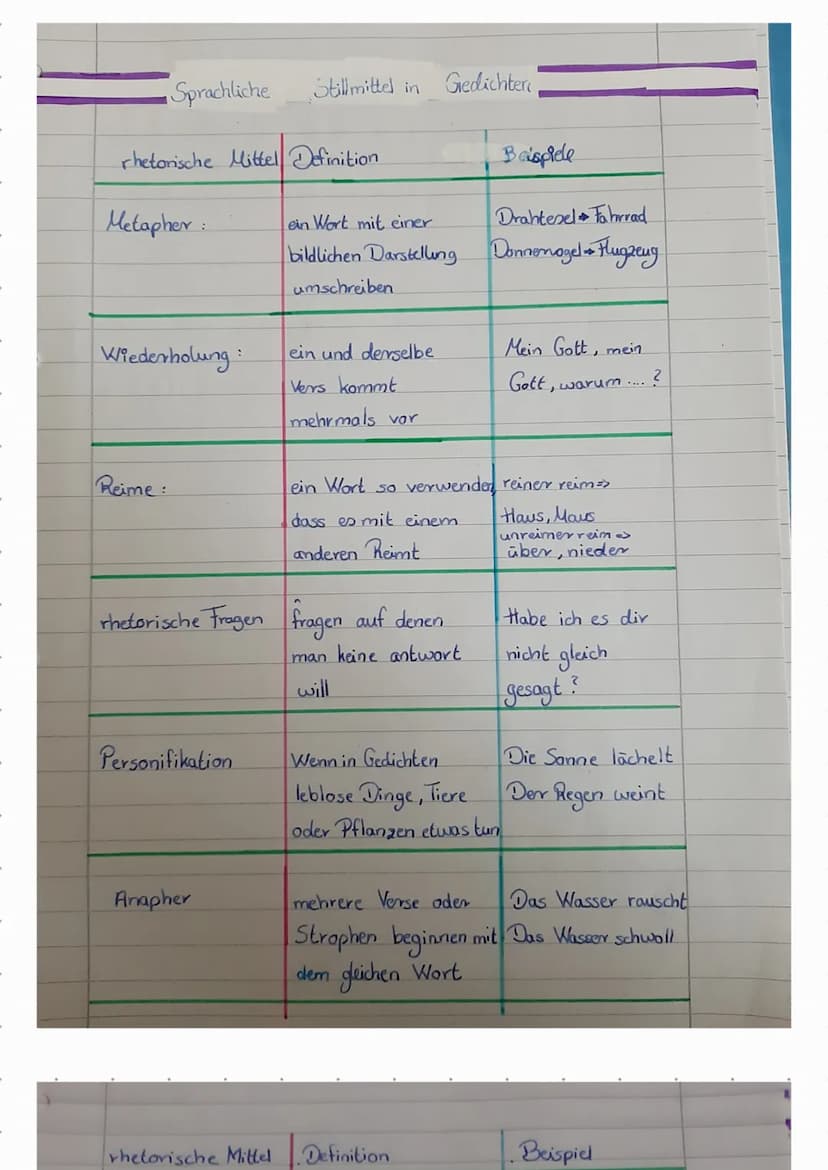 Sprachliche Stillmittel in Gedichten
rhetorische Mittel Definition Beispiele
Metapher : ein Wort mit einer Drahtesel → Fahrrad
bildlichen Darstellung Donnervogel → Flugzeug
umschreiben
Wiederholung : ein und derselbe Mein Gott, mein
Vers kommt Gott, warum .... ?
mehrmals vor
Reime : ein Wort so verwenden reiner reim =>
dass es mit einem Haus, Maus
unreimer reim =>
anderen Reimt über, nieder
rhetorische Fragen fragen auf denen Habe ich es dir
man keine antwort nicht gleich
will gesagt ?
Personifikation Wenn in Gedichten Die Sonne lächelt
leblose Dinge, Tiere Der Regen weint
oder Pflanzen etwas tun
Anapher mehrere Verse oder Das Wasser rauscht
Strophen beginnen mit Das Wasser schwoll
dem gleichen Wort
rhetorische Mittel . Definition . Beispiel